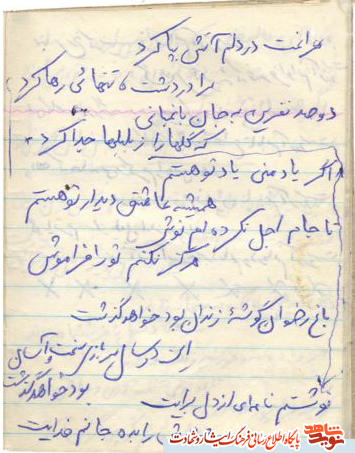 فراقت در دلم آتش بپا کرد
مرا در دشت تنهائی رها کرد
دو صد نفرین به جان باغبانی
که گلها را ز بلبلها جدا کرد
اگر یاد منی یاد تو هستم
همیشه عاشق دیدار تو هستم
تا جام اجل نکرده‌ام نوش
هرگز نکنم تو را فراموش
باغ رضوان گوشهٔ زندان بود خواهد گذشت
این دو سال سربازی سخت و آسان
بود خواهد گذشت
نوشتم نامه‌ای از دل برایت
را بده جانم فدایت
نوید شاهد
پایگاه اطلاع رسانی فرهنگ ایثار و شهادت